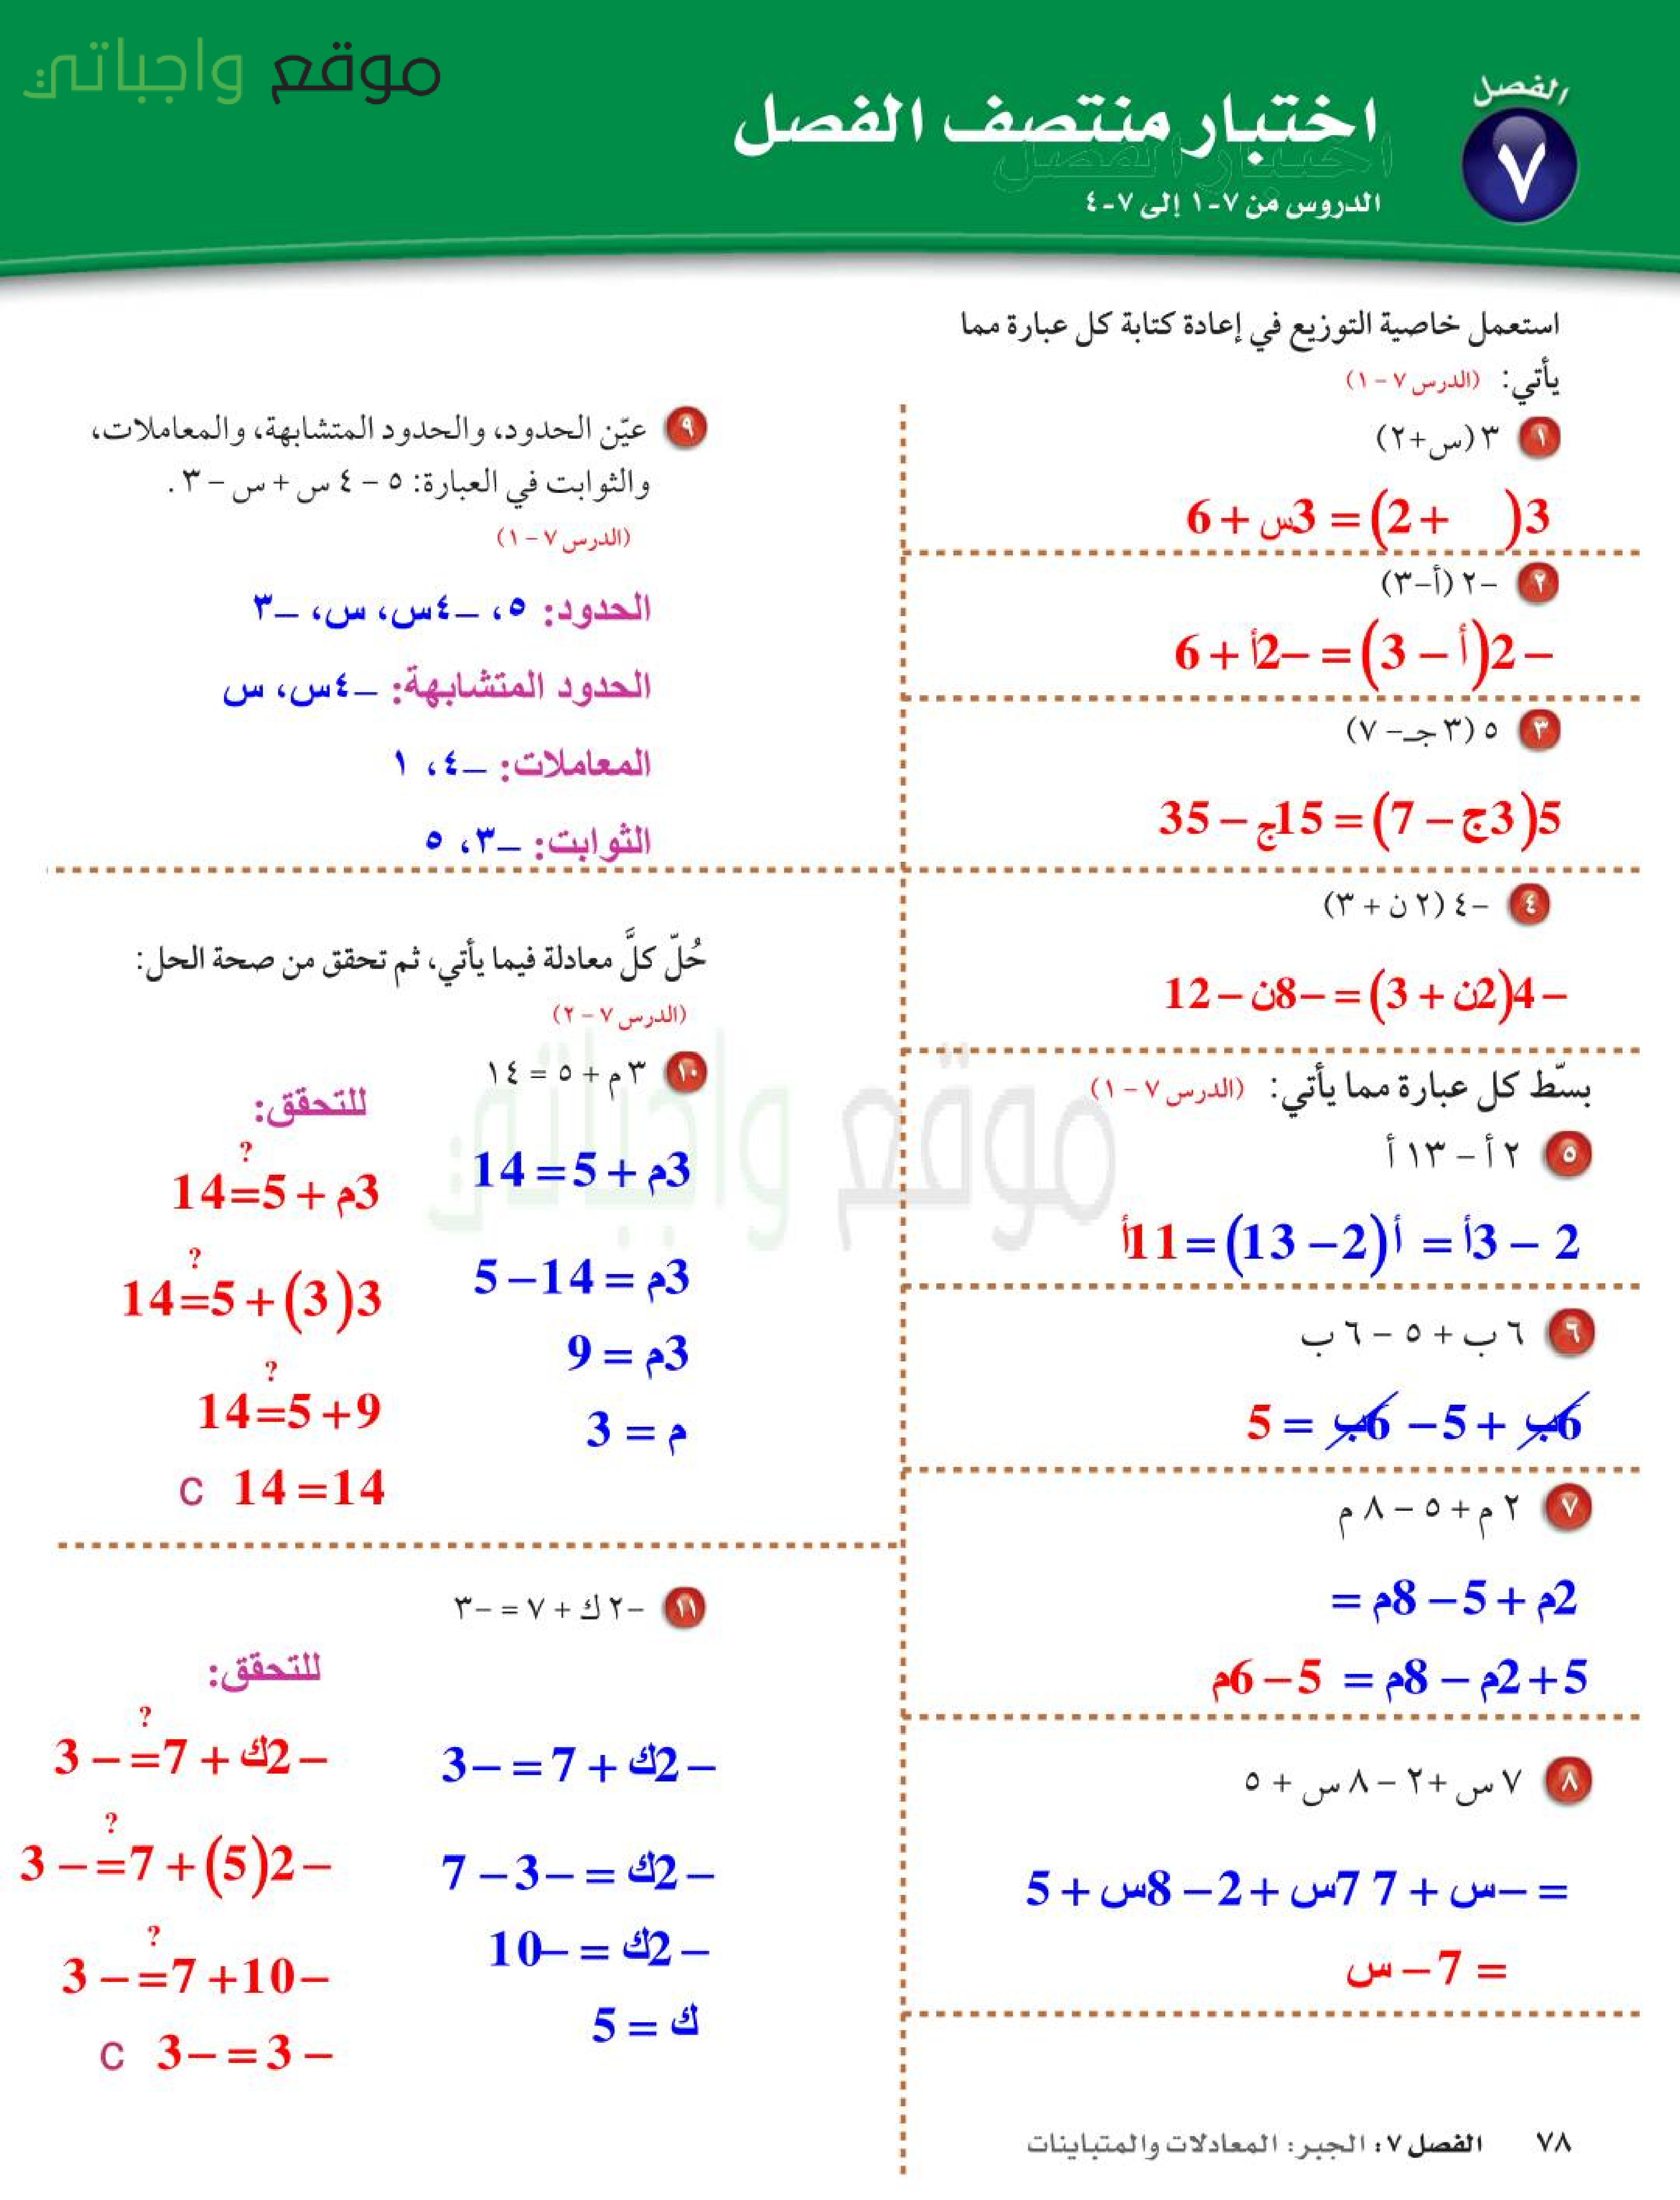 موقع واجباتي
الفصل
٧
اختبار منتصف الفصل
الدروس من ٧-١ إلى ٧-٤
استعمل خاصية التوزيع في إعادة كتابة كل عبارة مما
يأتي: (الدرس ٧ – ١)
١ ٣ (س+٢)
3( +2) = 3س + 6
٢ –٢ (أ–٣)
–2(أ – 3) = –2أ + 6
٣ ٥ (٣ جـ– ٧)
5(3ج – 7) = 15ج – 35
٤ –٤ (٢ ن + ٣)
–4(2ن + 3) = –8ن – 12
بسّط كل عبارة مما يأتي: (الدرس ٧ – ١)
٥ ٢ أ – ١٣ أ
2 – 3أ = أ(2– 13) =11أ
٦ ٦ ب + ٥ – ٦ ب
6ب +5– 6ب = 5
٧ ٢ م + ٥ – ٨ م
2م + 5– 8م =
5+2م – 8م = 5– 6م
٨ ٧ س +٢ – ٨ س + ٥
= –س + 7 7س +2– 8س + 5
= 7– س
٩ عيّن الحدود، والحدود المتشابهة، والمعاملات،
والثوابت في العبارة: ٥ – ٤ س + س – ٣ .
(الدرس ٧ – ١)
الحدود: ٥، –٤س، س، –٣
الحدود المتشابهة: –٤س، س
المعاملات: –٤، ١
الثوابت: –٣، ٥
حُلّ كلَّ معادلة فيما يأتي، ثم تحقق من صحة الحل:
(الدرس ٧ – ٢)
١٠ ٣ م + ٥ = ١٤
3م + 5= 14
3م = 14– 5
3م = 9
م = 3
للتحقق:
?
3م + 5=14
?
3(3) + 5=14
?
9+ 5=14
14= 14 C
١١ –٢ ك + ٧ = –٣
–2ك + 7 = –3
–2ك = –3– 7
–2ك = –10
ك = 5
للتحقق:
?
–2ك + 7=– 3
?
–2(5) + 7=– 3
?
–10+ 7=– 3
–3 = –3 C
موقع واجباتي
٧٨ الفصل ٧: الجبر: المعادلات والمتباينات